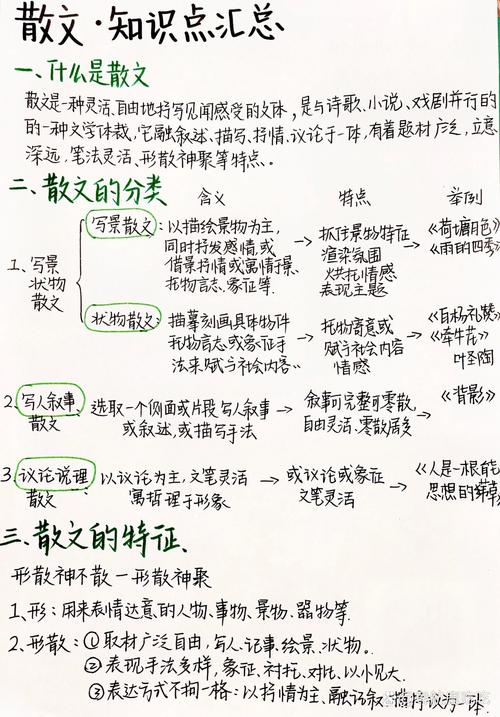 散文·知识点汇总
一、什么是散文
散文是一种灵活、自由地抒写见闻感受的文体,是与诗歌、小说、戏剧并行的
的一种文学体裁,它融叙述、描写、抒情、议论于一体,有着题材广泛,立意
深远,笔法灵活、形散神聚等特点、。
二、散文的分类 含义 特点 举例
1、写景状物散文
写景散文:以描绘景物为主,
同时抒发感情,或
借景抒情或寓情于景、
托物言志、象征等.
→ 抓住景物特征
渲染氛围
烘托情感
表现主题
→ 《荷塘月色》
《雨的四季》
状物散文:描摹刻画具体物件
托物言志或象征手
法来“赋与社会内容”
→ 托物寄意或
赋与社会内容
情感
→ 《白杨礼赞》
《牵牛花》
叶圣陶
2、写人叙事、选取一个侧面或片段写人叙事 → 叙事可完整可零散, → 《背影》
散文 或叙述,或描写手法 自由灵活、零散居多
3、议论说理 以议论为主,文笔灵活 → 或议论或象征 → 《人是一根能
散文 寓哲理于形象 文笔灵活 思想的苇草
三、散文的特征、
形散神不散—形散神聚
1、形:用来表情达意的人物、事物、景物、器物等.
2、形散:①取材广泛自由,写人、记事、绘景、状物。.
②表现手法多样,象征、衬托、对比、以小见大.
③表达方式不拘一格:以抒情为主、融记叙、描抒议为一体.